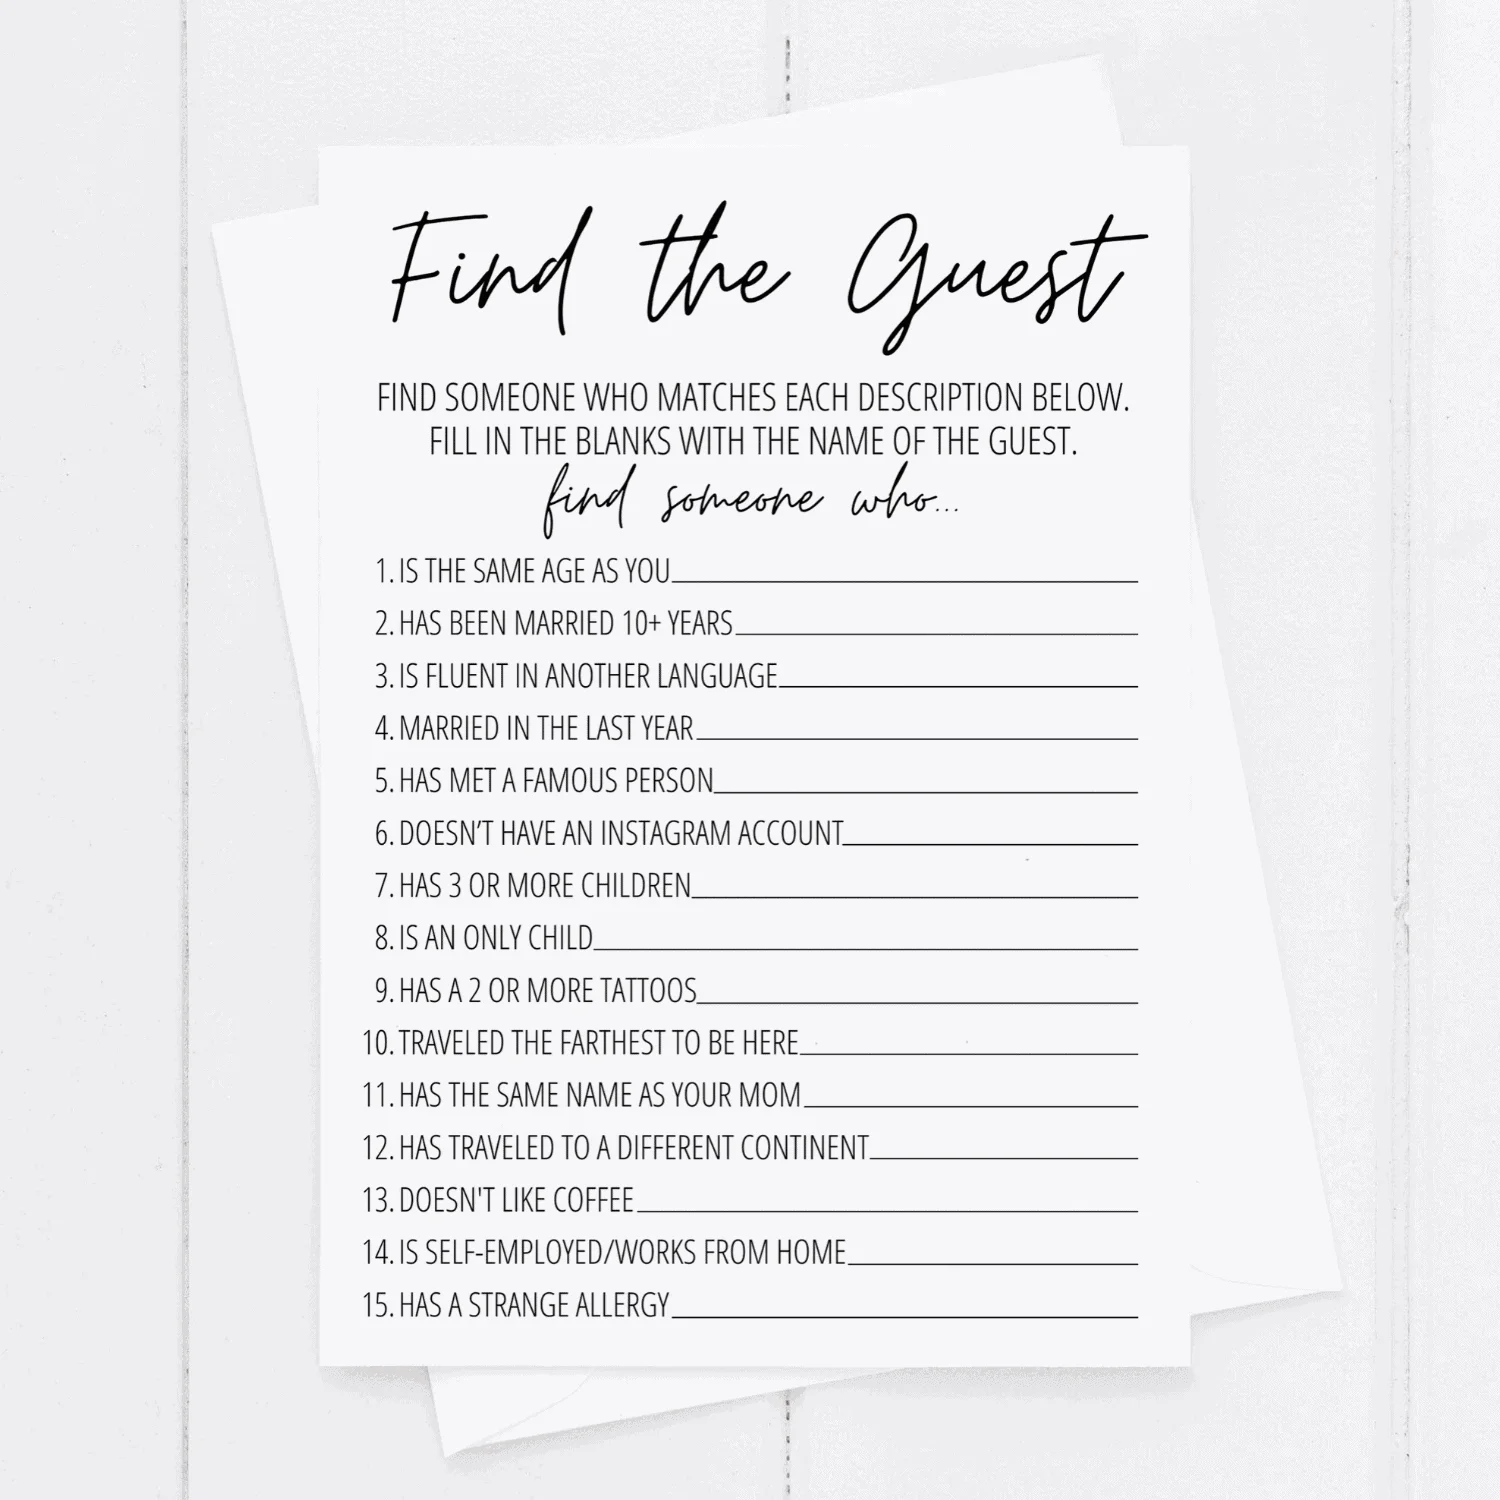 Find the Guest
FIND SOMEONE WHO MATCHES EACH DESCRIPTION BELOW.
FILL IN THE BLANKS WITH THE NAME OF THE GUEST.
find someone who...
1. IS THE SAME AGE AS YOU
2. HAS BEEN MARRIED 10+ YEARS
3. IS FLUENT IN ANOTHER LANGUAGE
4. MARRIED IN THE LAST YEAR
5. HAS MET A FAMOUS PERSON
6. DOESN’T HAVE AN INSTAGRAM ACCOUNT
7. HAS 3 OR MORE CHILDREN
8. IS AN ONLY CHILD
9. HAS A 2 OR MORE TATTOOS
10. TRAVELED THE FARTHEST TO BE HERE
11. HAS THE SAME NAME AS YOUR MOM
12. HAS TRAVELED TO A DIFFERENT CONTINENT
13. DOESN'T LIKE COFFEE
14. IS SELF-EMPLOYED/WORKS FROM HOME
15. HAS A STRANGE ALLERGY